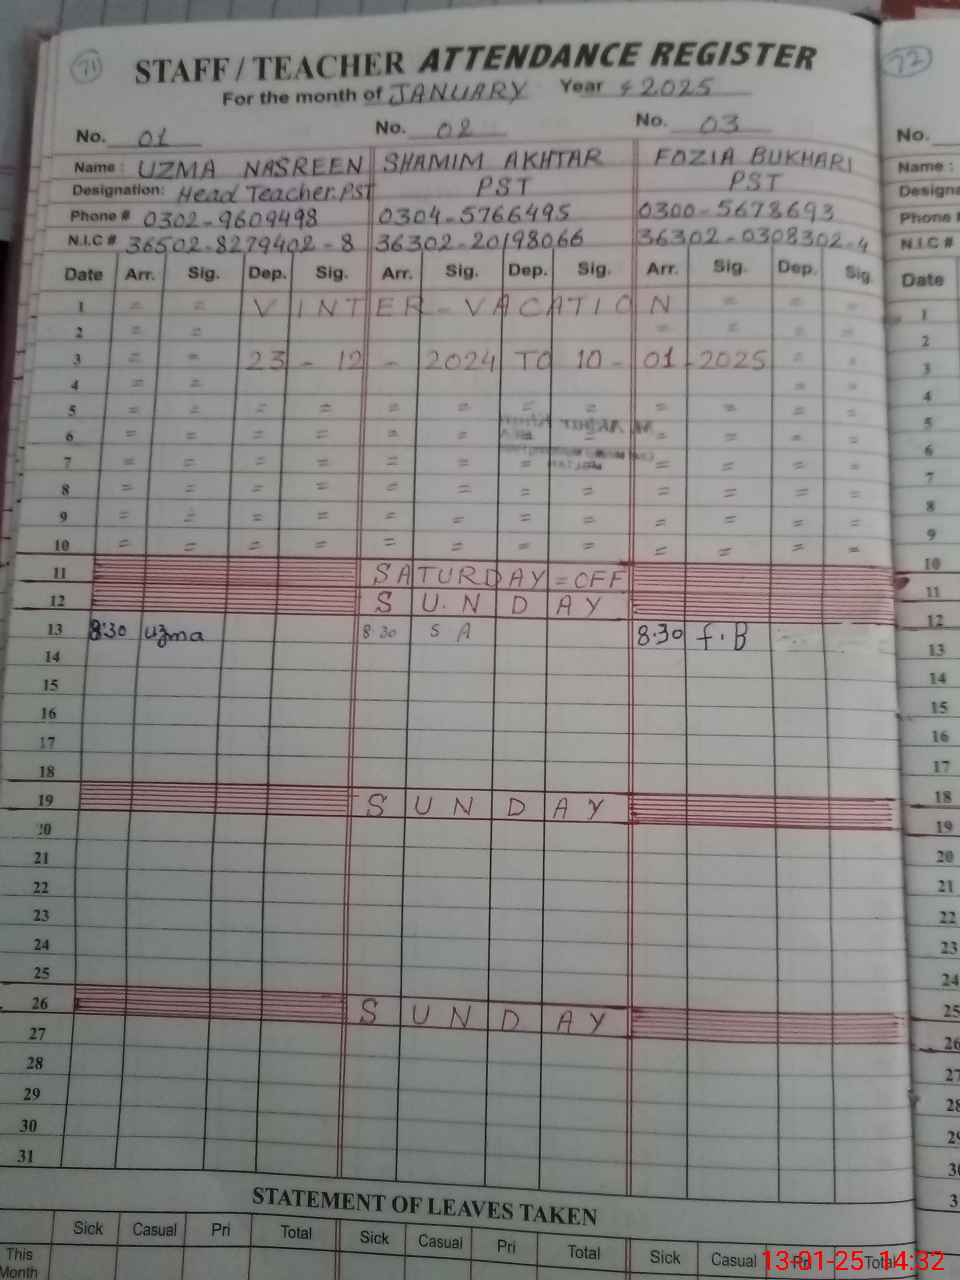 71
STAFF / TEACHER ATTENDANCE REGISTER
72
For the month of JANUARY Year 2025
No. 01 No. 02 No. 03 No.
Name : UZMA NASREEN SHAMIM AKHTAR FOZIA BUKHARI Name :
Designation: Head Teacher.PST PST PST Designa
Phone # 0302-9609498 0304-5766495 0300-5678693 Phone #
N.I.C # 36502-8279402-8 36302-20198066 36302-0308302-4 N.I.C #
Date Arr. Sig. Dep. Sig. Arr. Sig. Dep. Sig. Arr. Sig. Dep. Sig. Date
1 = = VINTER-VACATION = = = 1
2 = = = = = = 2
3 = = 23-12-2024 TO 10-01-2025 = = 3
4 = = = = 4
5 = = = = = = = = = = = = 5
6 = = = = = = = = = = = 6
7 = = = = = = = = = = = 7
8 = = = = = = = = = = = = 8
9 = = = = = = = = = = = = 9
10 = = = = = = = = = = = = 10
11 SATURDAY = OFF 11
12 SUNDAY 12
13 8:30 uzma 8:30 S A 8.30 f.B 13
14 14
15 15
16 16
17 17
18 18
19 SUNDAY 19
20 20
21 21
22 22
23 23
24 24
25 25
26 SUNDAY 26
27 27
28 28
29 29
30 30
31 3
STATEMENT OF LEAVES TAKEN
Sick Casual Pri Total Sick Casual Pri Total Sick Casual Pri Total
This
Month
13-01-25 14:32